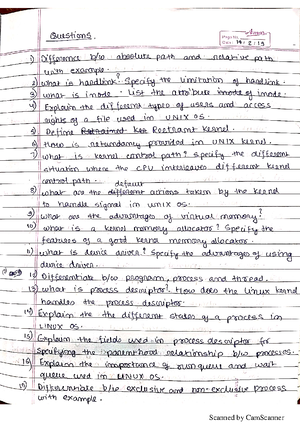 Questions.
Date: 14.2.19
1) Difference b/w absolute path and relative path
with example.
2) What is hardlink? Specify the limitation of hardlink.
3) What is inode. List the attribute inode of inode.
4) Explain the different types of users and access
rights of a file used in UNIX OS.
5) Define Reentrant Kernel.
6) How is redundancy provided in UNIX kernel.
7) What is kernel control path? Specify the different
situation where the CPU interleaves different kernel
control path.
default
8) What are the different actions taken by the kernel
to handle signal in UNIX OS.
9) What are the advantages of virtual memory?
10) What is a kernel memory allocator? Specify the
features of a good kernel memory allocator.
11) What is device driver? Specify the advantages of using
device driver.
12) Differentiate b/w program, process and thread.
13) What is process descriptor? How does the Linux kernel
handles the process descriptor.
14) Explain the the different states of a process in
LINUX OS.
15) Explain the fields used in process descriptor for
specifying the parenthood relationship b/w processes.
16) Explain the importance of runqueue and wait
queue used in LINUX OS.
17) Differentiate b/w exclusive and non-exclusive process
with example.
Scanned by CamScanner